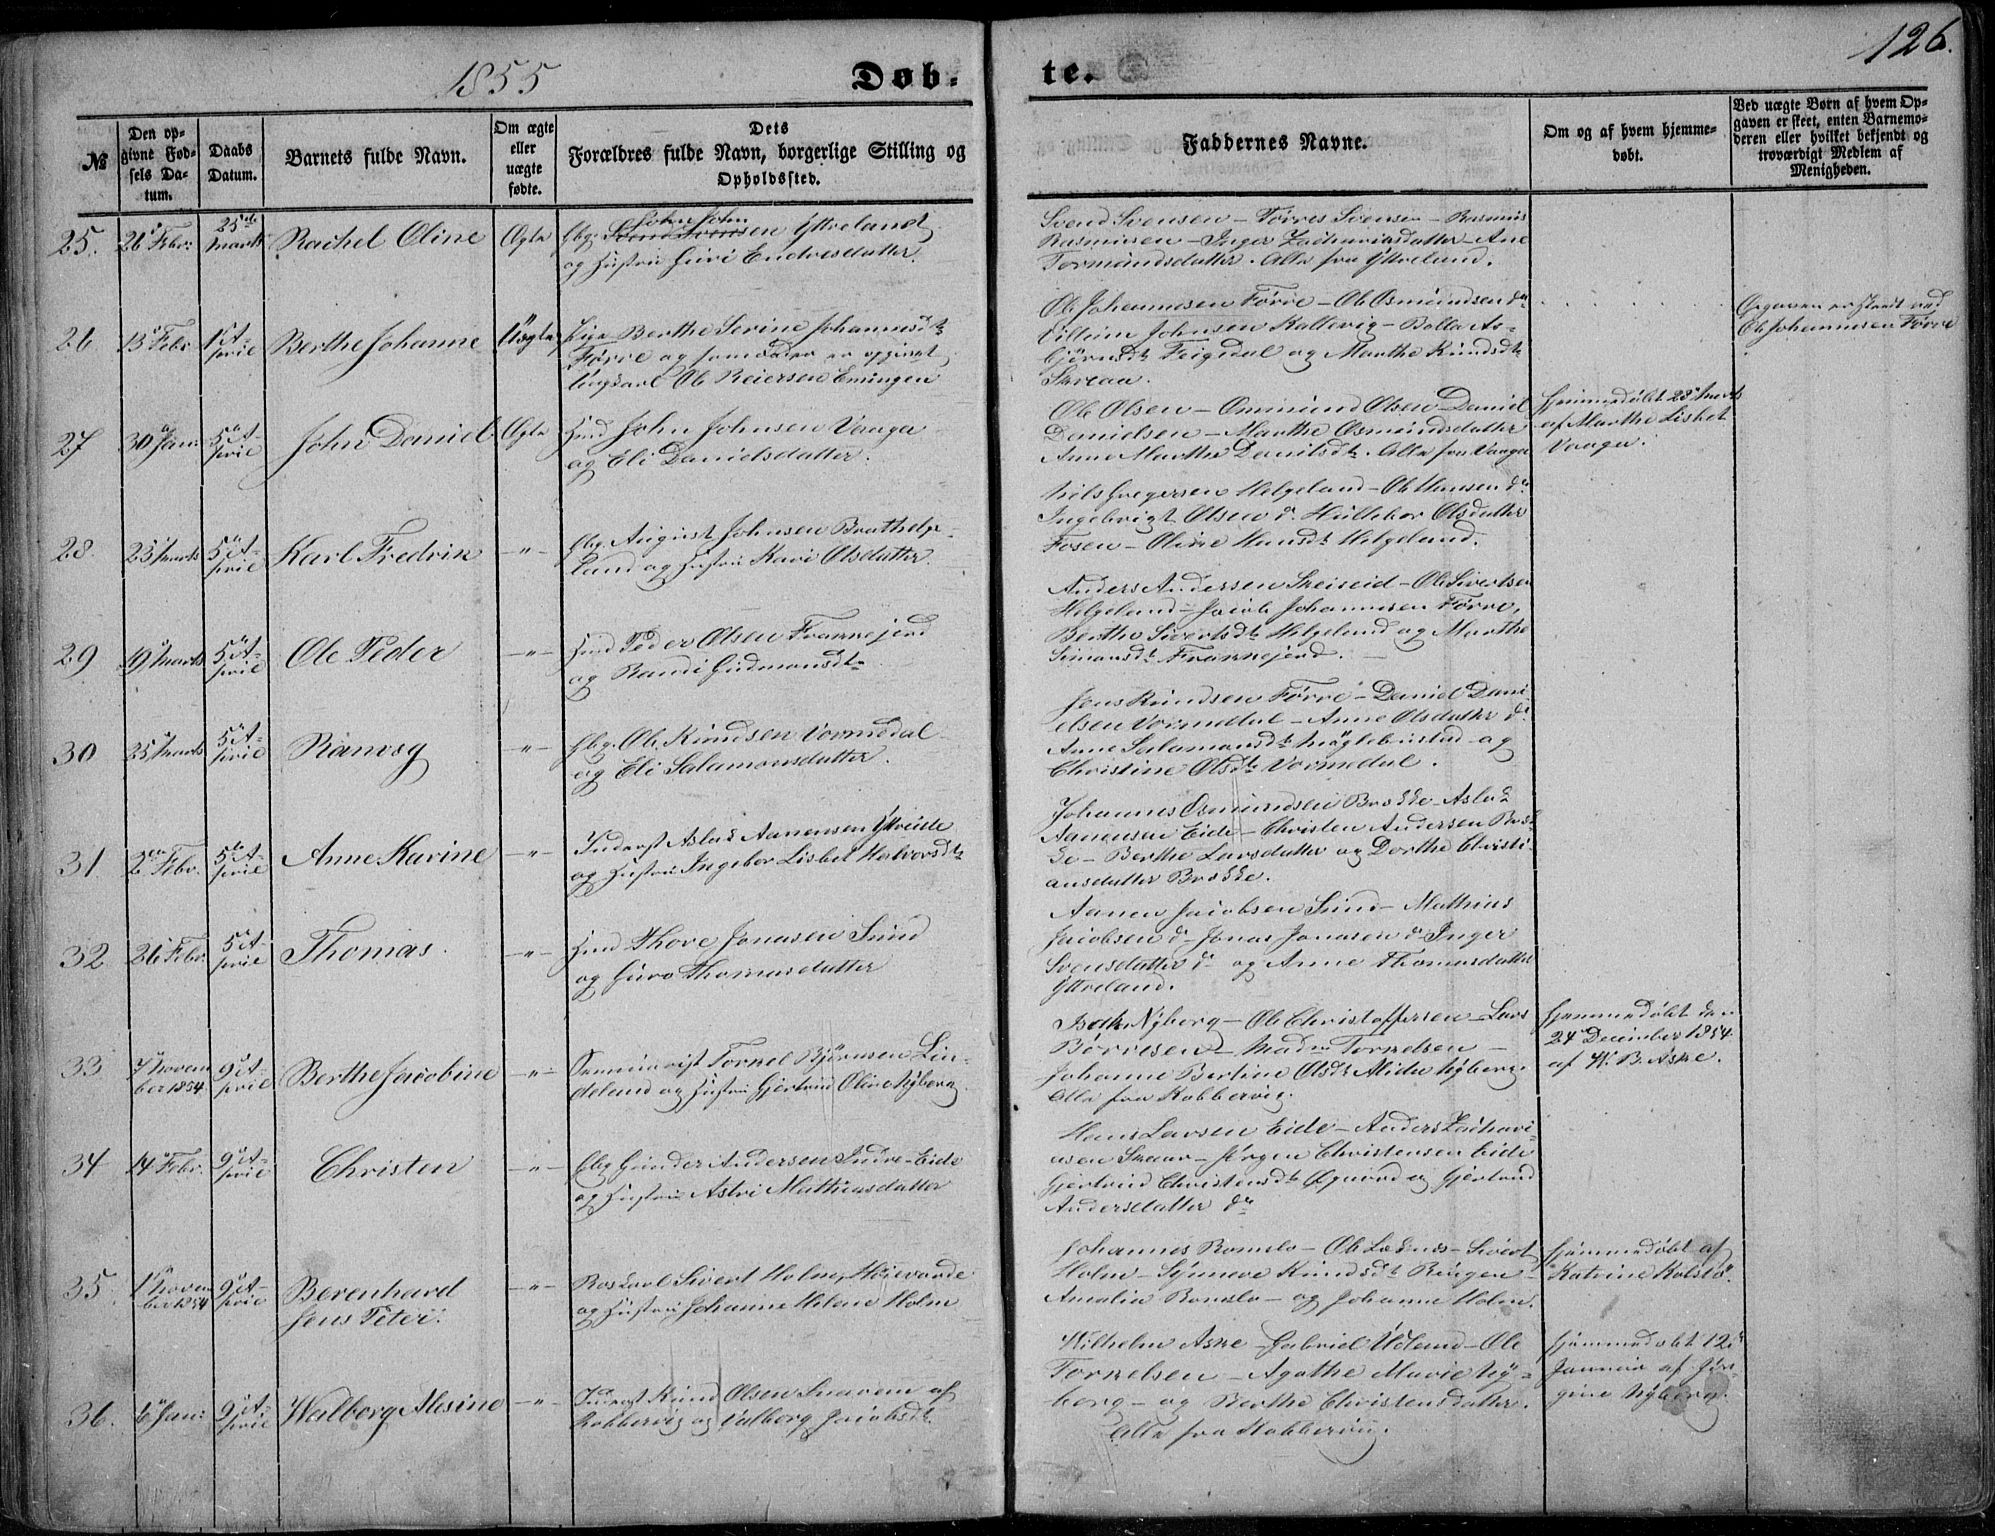 1855
Døb-
te.
126.
№
Den op-
givne Fød-
sels Da-
tum.
Daabs
Datum.
Barnets fulde Navn.
Om ægte
eller
uægte
fødte.
Dets
Forældres fulde Navn, borgerlige Stilling og
Opholdssted.
Faddernes Navne.
Om og af hvem hjemme-
døbt.
Ved uægte Børn af hvem Op-
gaven er skeet, enten Barnemo-
deren eller hvilket bekjendt og
troværdigt Medlem af
Menigheden.
25. 26 Febr: 25de Marts Rachel Oline Ægte Gbr. John John
Svend Svensen Ytreland
og Hustru Guri Endresdatter.
Svend Svensen – Torres Svensen – Rasmus
Rasmusen – Inger Zachariasdatter – Ane
Tormundsdatter. Alle fra Ytreland.
26 13 Febr 1 A-
pril Berthe Johanne Uægte Pige Berthe Serine Johannesdt
Førre og som Fader er opgivet
Ungkarl Ole Reiersen Emingen
Ole Johannesen Førre – Ole Osmundsen do
Villum Johnsen Kallevig – Bolla As-
bjørnsdt Feigedal og Marthe Knudsdt
Skreaa.
Opgaven er skeet ved
Ole Johannesen Førre
27 30 Jan: 5 A-
pril John Daniel Ægte Hmd John Johnsen Vaaga
og Eli Danielsdatter.
Ole Olsen – Ommund Olsen – Daniel
Danielsen – Marthe Osmundsdatter
Anne Marthe Danielsdt. Alle fra Vaaga
Hjemmedøbt 28 Marts
af Marthe Lisbet
Vaaga.
28. 23 Marts 5 A-
pril Karl Fredrik –"– Gbr. August Johnsen Brathelge-
land og Hustru Kari Olsdatter.
Nils Gregersen Helgeland – Ole Hansen do
Ingebrigt Olsen do. Hullebor Olsdatter
Fosen – Oline Hansdt Helgeland.
29 19 Marts 5 A-
pril Ole Peder –"– Hmd Peder Olsen Frannejerd
og Randi Gudmansdt
Anders Andersen Skeiseid – Ole Sivertsen
Helgeland – Jacob Johannesen Førre,
Berthe Sivertsdt Helgeland og Marthe
Simonsdt Frannejerd. –
30 25 Marts 5 A-
pril Ranveg –"– Gbr. Ole Knudsen Vormedal
og Eli Salamonsdatter.
Jens Knudsen Førre – Daniel Dani-
elsen Vormedal – Anne Olsdatter do
Anne Salamonsdt Møglebustad og
Christine Olsdt Vormedal.
31. 2en Febr. 5te A-
pril Anne Karine –"– Inderst Aslak Aanensen Ytreeide
og Hustru Ingebor Lisbet Halvorsdt
Johannes Osmundsen Brekke – Aslak
Aanensen Eide – Christen Andersen Brek-
ke – Berthe Larsdatter og Dorthe Christi-
ansdatter Brekke.
32 26 Febr. 5 A-
pril Thomas. –"– Hmd Thore Jonasen Sund
og Guro Thomasdatter
Aanen Jacobsen Sund – Mathias
Jacobsen do – Jonas Jonasen do – Inger
Svensdatter do og Anne Thomasdatter
Ytreland.
33 7 Novem
ber 1854. 9 A-
pril Berthe Jacobine –"– Seminarist Torkel Bjørnsen Lin-
deland og Hustru Gjertrud Oline Nyberg
Nyborg – Ole Christoffersen – Lars
Børresen – Madme Torkelsen –
Johanne Bertine Olsdt Alida Nyberg.
Alle fra Kobbervig.
Hjemmedøbt den
24 December 1854
af W. B. Aske.
34 14 Febr. 9 A-
pril Christen –"– Gbr Gunder Andersen Indre-Eide
og Hustru Astri Mathiasdatter
Hans Larsen Eide – Anders Zachari-
asen Skaar – Jørgen Christensen Eide
Gjertrud Christensdt og Gjertrud
Andersdatter do
35. 1 Novem
ber 1854 9 A-
pril Berenhard
Jens Peter. –"– Sivert Holm, Høievarde
og Hustru Johanne Helene Holm
Johannes Romslo – Ole – Sivert
Holm – Synneve Knudsdt Ringen –
Amalia Romslo – og Johanne Holm.
Hjemmedøbt af
Katrine Kolstø.
36. 6 Jan: 9 A-
pril Walborg Alesine –"– Inderst Knud Olsen Snaren af
Kobbervig og Valborg Jacobsdt.
Wilhelm Aske – Gabriel Udland – Ole
Torkelsen – Agathe Marie Ny-
berg – og Berthe Christensdatter.
Alle fra Kobbervig.
Hjemmedøbt 12
Januar af Jør-
gine Nyberg.